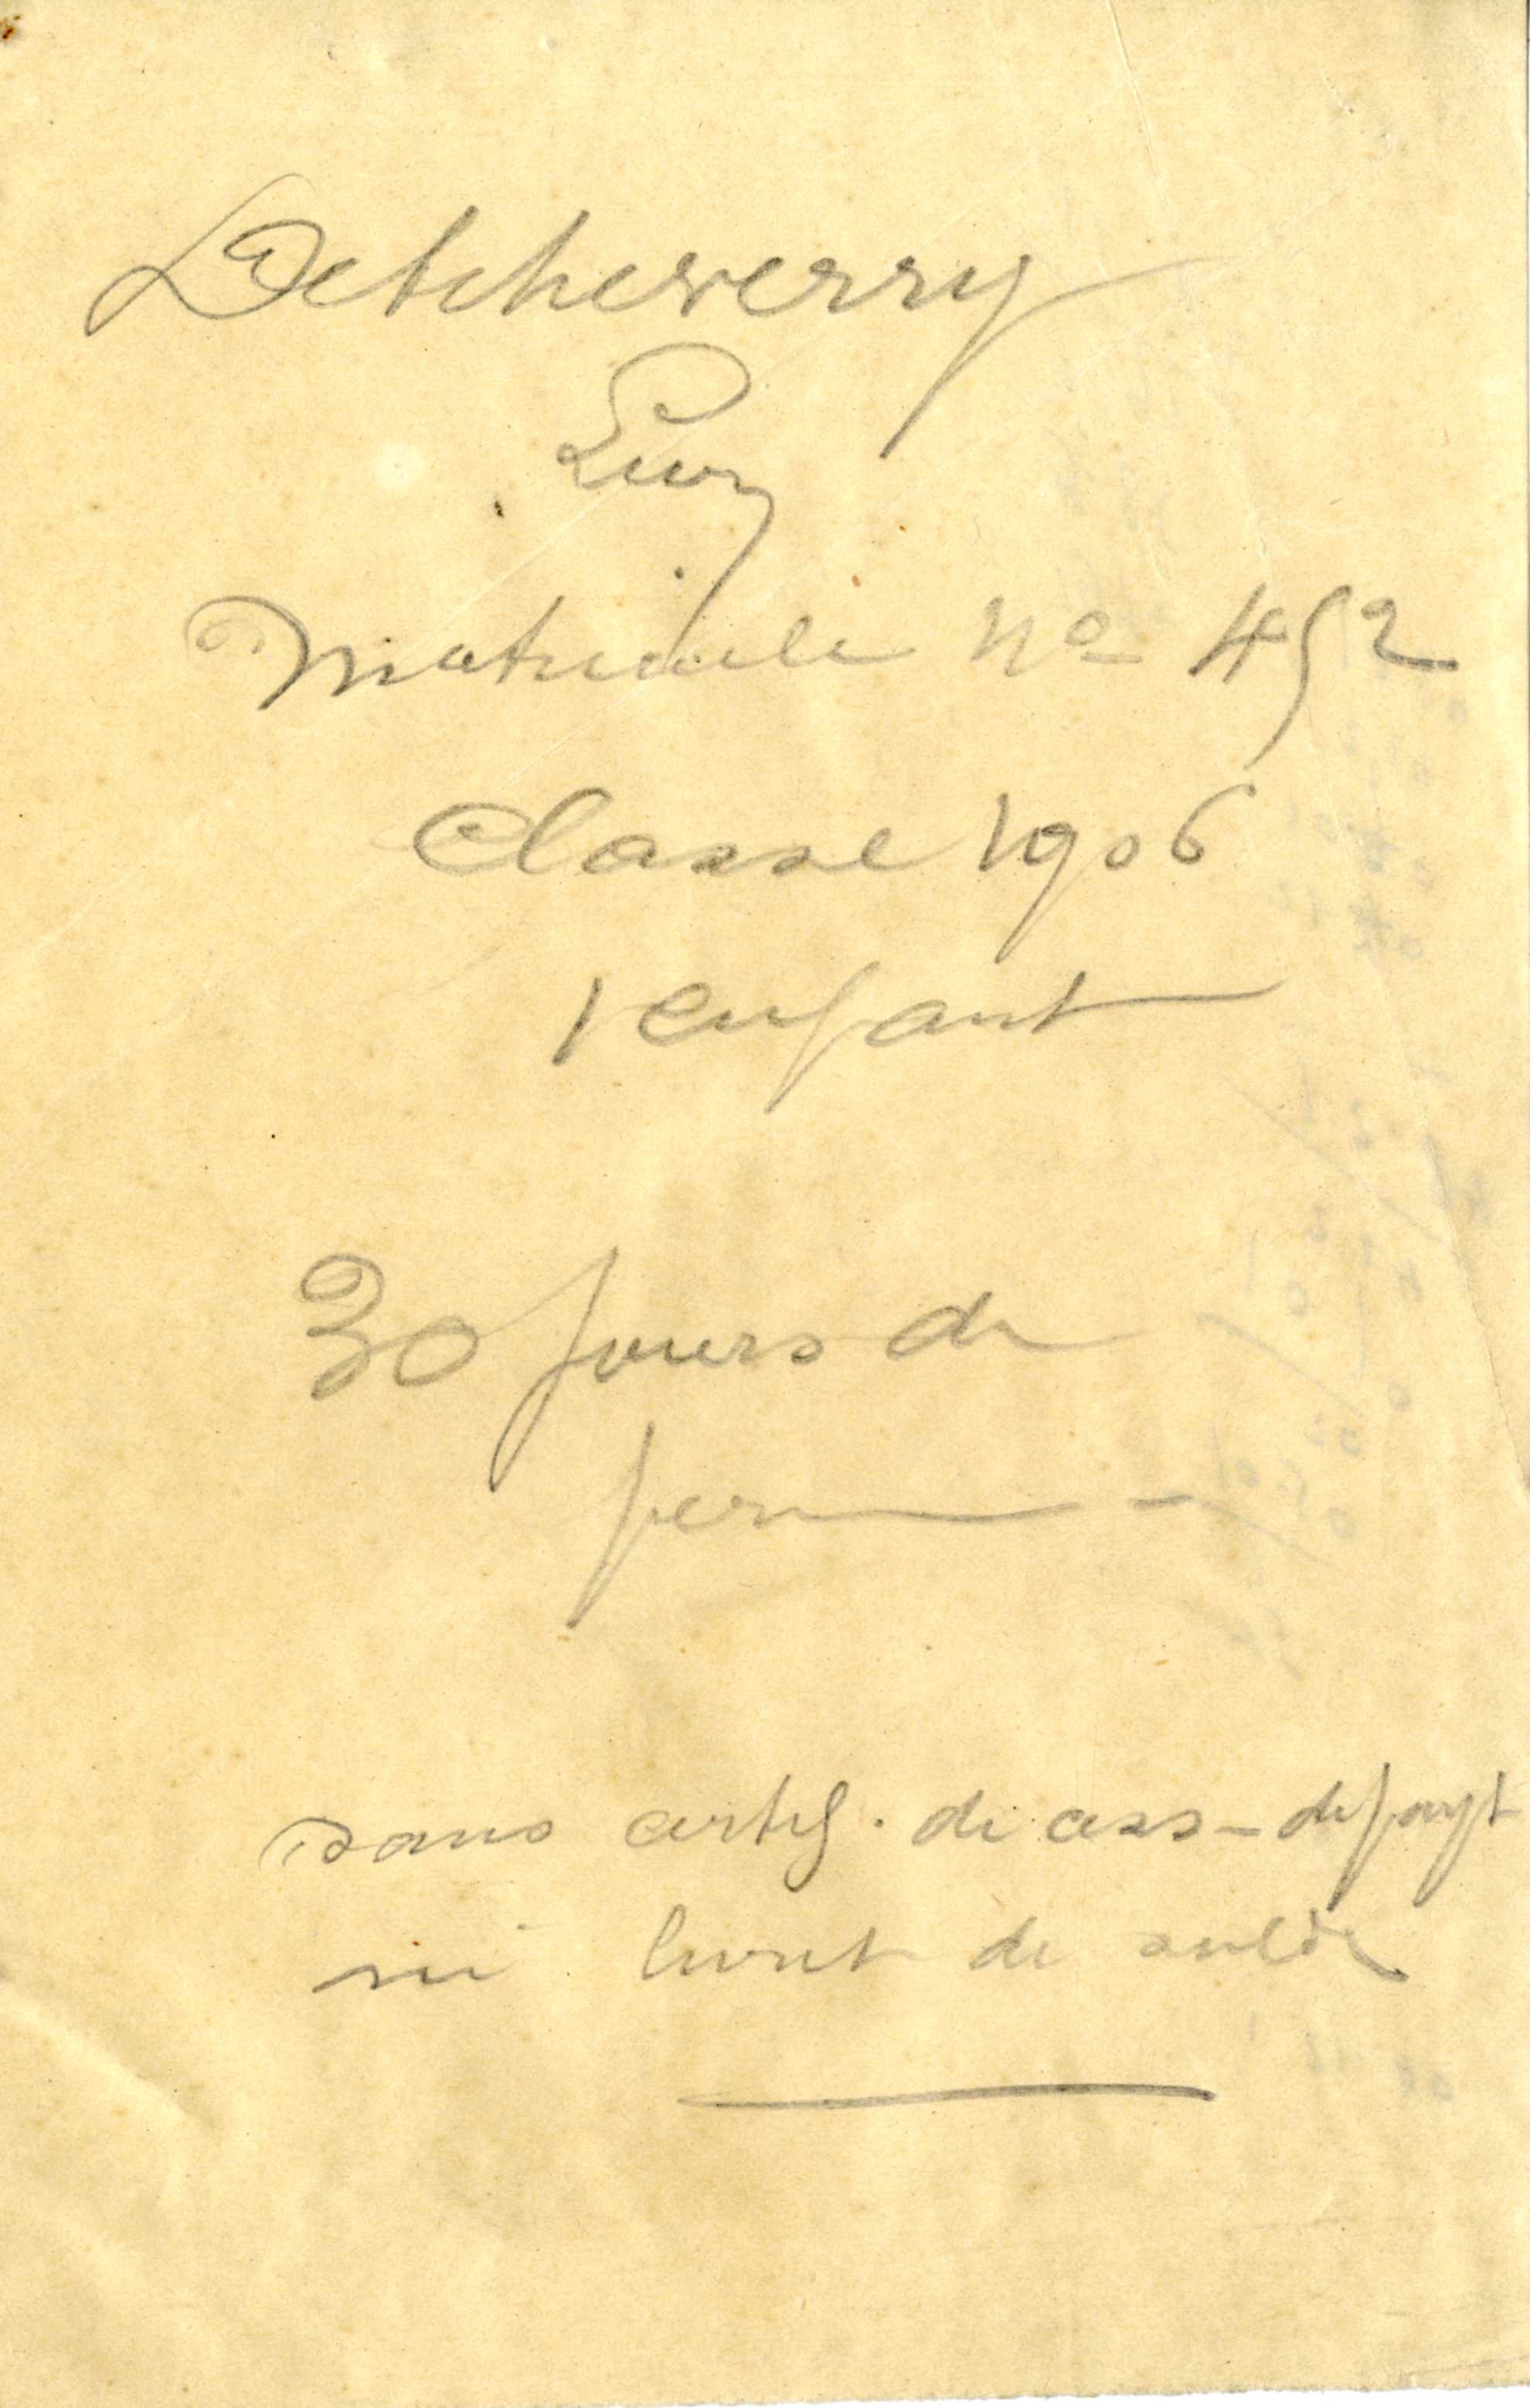 Detcheverry
Léon
Matricule No 452
Classe 1906
1 enfant
30 jours de
perm —
sans certif. de cess – de payt
ni livret de solde